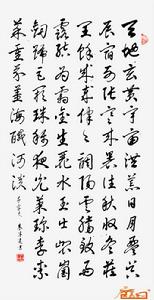 天地玄黃宇宙洪荒日月盈昃
辰宿列張寒來暑往秋收冬藏
閏餘成歲律呂調陽雲騰致雨
露結為霜金生麗水玉出崑岡
劍號巨闕珠稱夜光果珍李柰
菜重芥薑海鹹河淡
千字文